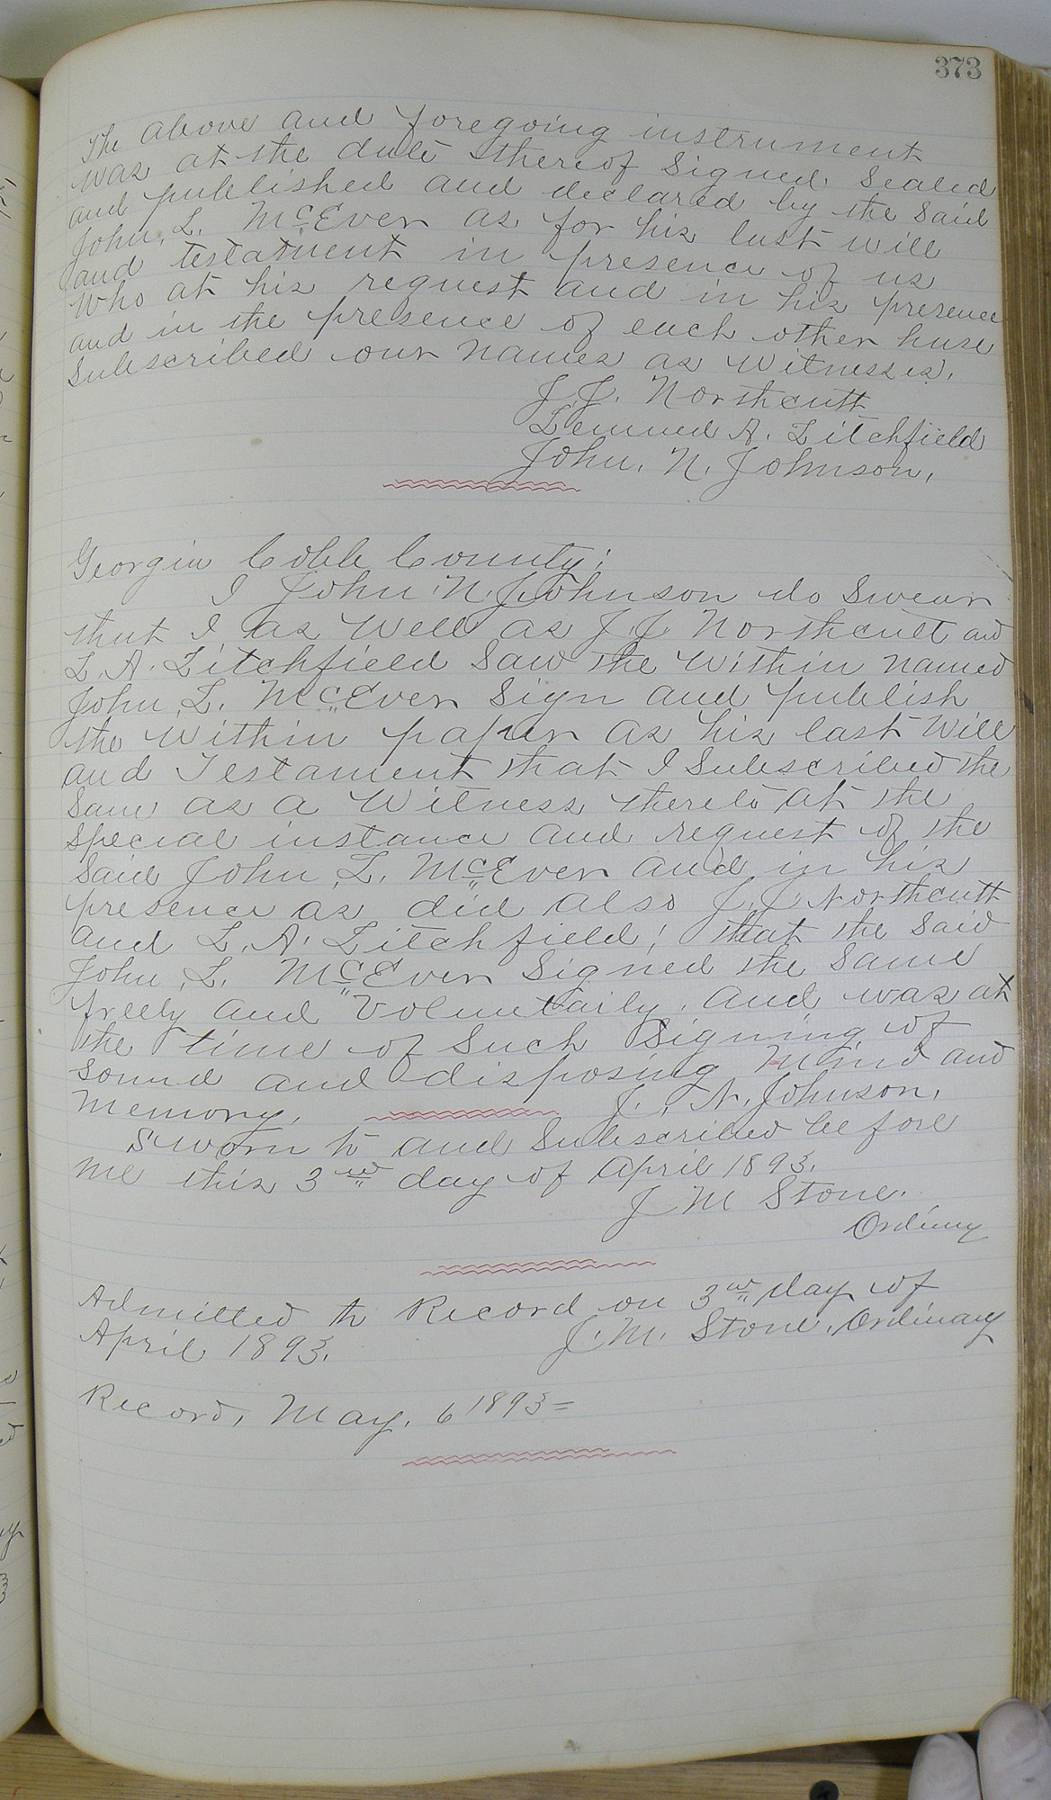 373
The above and foregoing instrument
was at the date thereof Signed Sealed
and published and declared by the Said
John, L. McEver as for his last will
and testatment in presence of us
Who at his request and in his presence
and in the presence of each other have
Subscribed our names as Witnesses.
J. J. Northcutt
Lemuel A. Litchfield
John, N. Johnson,
Georgia Cobb County;
I John N. Johnson do Swear
that I as Well as J. J. Northcutt and
L. A. Litchfield Saw the Within named
John L. McEver Sign and publish
the Within paper as his last Will
and Testament that I Subscribed the
Same as a Witness thereto at the
special instance and request of the
Said John L. McEver and in his
presence as did also J. J. Northcutt
and L. A. Litchfield; that the Said
John, L. McEver Signed the Same
freely and Voluntaily, and was at
the time of Such Signing of
Sound and disposing Mind and
Memory. J. N. Johnson,
Sworn to and Subscribed before
me this 3rd day of April 1893.
J M Stone.
Ordinary
Admitted to Record on 3rd day of
April 1893. J. M. Stone, Ordinary
Record, May. 6 1893=